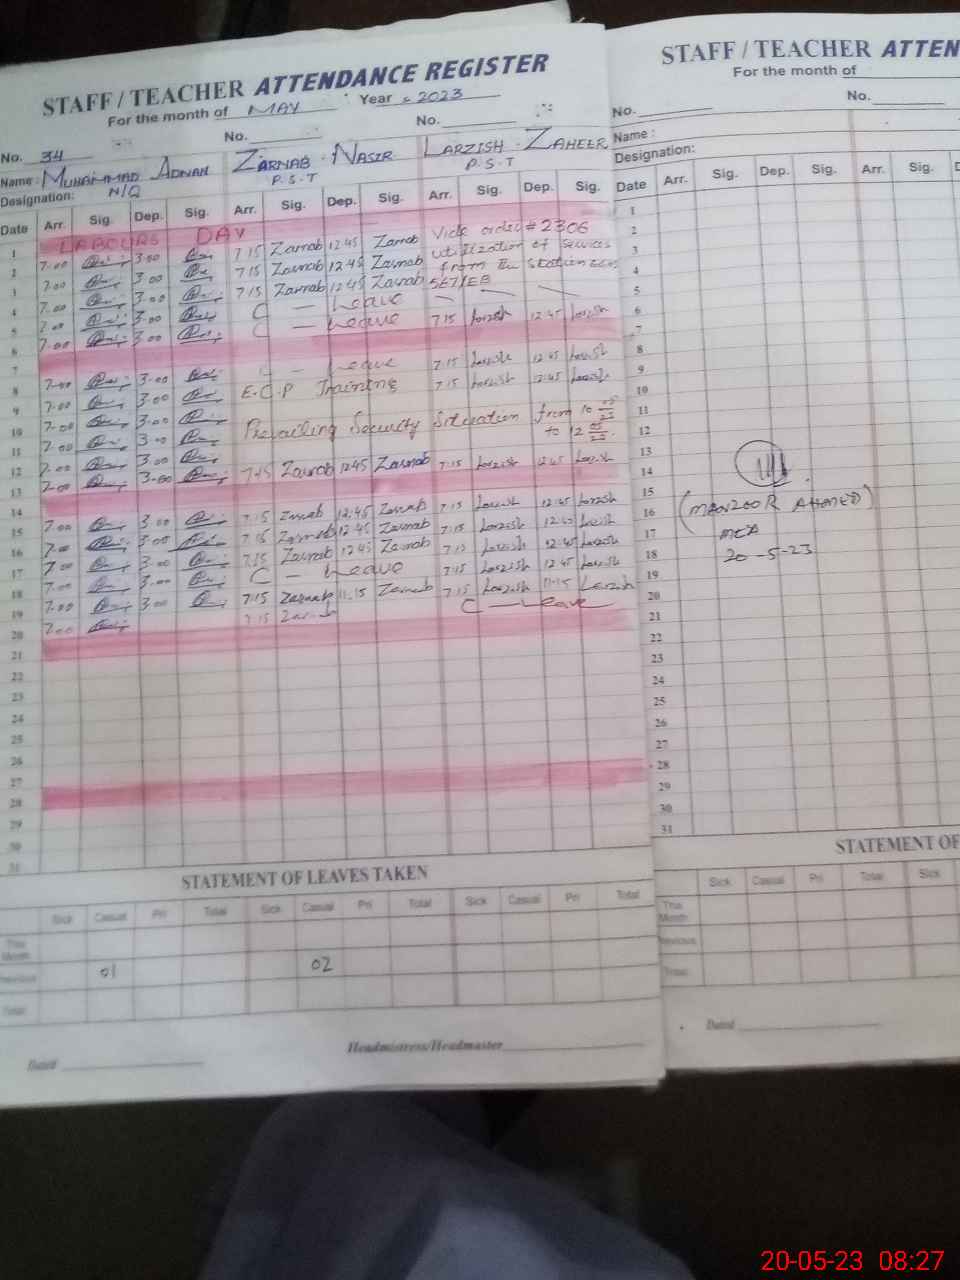 STAFF / TEACHER ATTENDANCE REGISTER
For the month of MAY Year 2023
No. 34 No. No.
Name: MUHAMMAD ADNAN ZARNAB NASIR LARZISH ZAHEER
Designation: N/Q P.S.T P.S.T
Date Arr. Sig. Dep. Sig. Arr. Sig. Dep. Sig. Arr. Sig. Dep. Sig.
1 LABOURS DAY Vide order # 2306
2 7.00 3.00 7.15 Zarnab 12.45 Zarnab utilization of services
3 7.00 3.00 7.15 Zarnab 12.45 Zarnab from the station
4 7.00 3.00 7.15 Zarnab 12.45 Zarnab
5 7.00 3.00 C — Leave
6 7.00 3.00 C — Leave 7.15 Larzish 12.45 Larzish
7
8 7.00 3.00 Leave 7.15 Larzish 12.45 Larzish
9 7.00 3.00 E.C.P Training 7.15 Larzish 12.45 Larzish
10 7.00 3.00
11 7.00 3.00 Prevailing Security Situation from 10
12 7.00 3.00 to 12
13 7.00 3.00 7.15 Zarnab 12.45 Zarnab 7.15 Larzish 12.45 Larzish
14
15 7.00 3.00 7.15 Zarnab 12.45 Zarnab 7.15 Larzish 12.45 Larzish
16 7.00 3.00 7.15 Zarnab 12.45 Zarnab 7.15 Larzish 12.45 Larzish
17 7.00 3.00 7.15 Zarnab 12.45 Zarnab 7.15 Larzish 12.45 Larzish
18 7.00 3.00 C — Leave 7.15 Larzish 12.45 Larzish
19 7.00 3.00 7.15 Zarnab 11.15 Zarnab 7.15 Larzish 11.15 Larzish
20 7.00 7.15 Zarnab C — Leave
21
22
23
24
25
26
27
28
29
30
31
STATEMENT OF LEAVES TAKEN
Sick Casual Pri Total Sick Casual Pri Total Sick Casual Pri Total
This Month
Previous 01 02
Total
Dated Headmistress/Headmaster
STAFF / TEACHER ATTEN
For the month of
No. No.
Name :
Designation:
Date Arr. Sig. Dep. Sig. Arr. Sig.
1
2
3
4
5
6
7
8
9
10
11
12
13
14
15
16 (MANZOOR AHMED)
17 MEA
18 20-5-23
19
20
21
22
23
24
25
26
27
28
29
30
31
STATEMENT OF
Sick Casual Pri Total Sick
This Month
Previous
Total
Dated
20-05-23 08:27